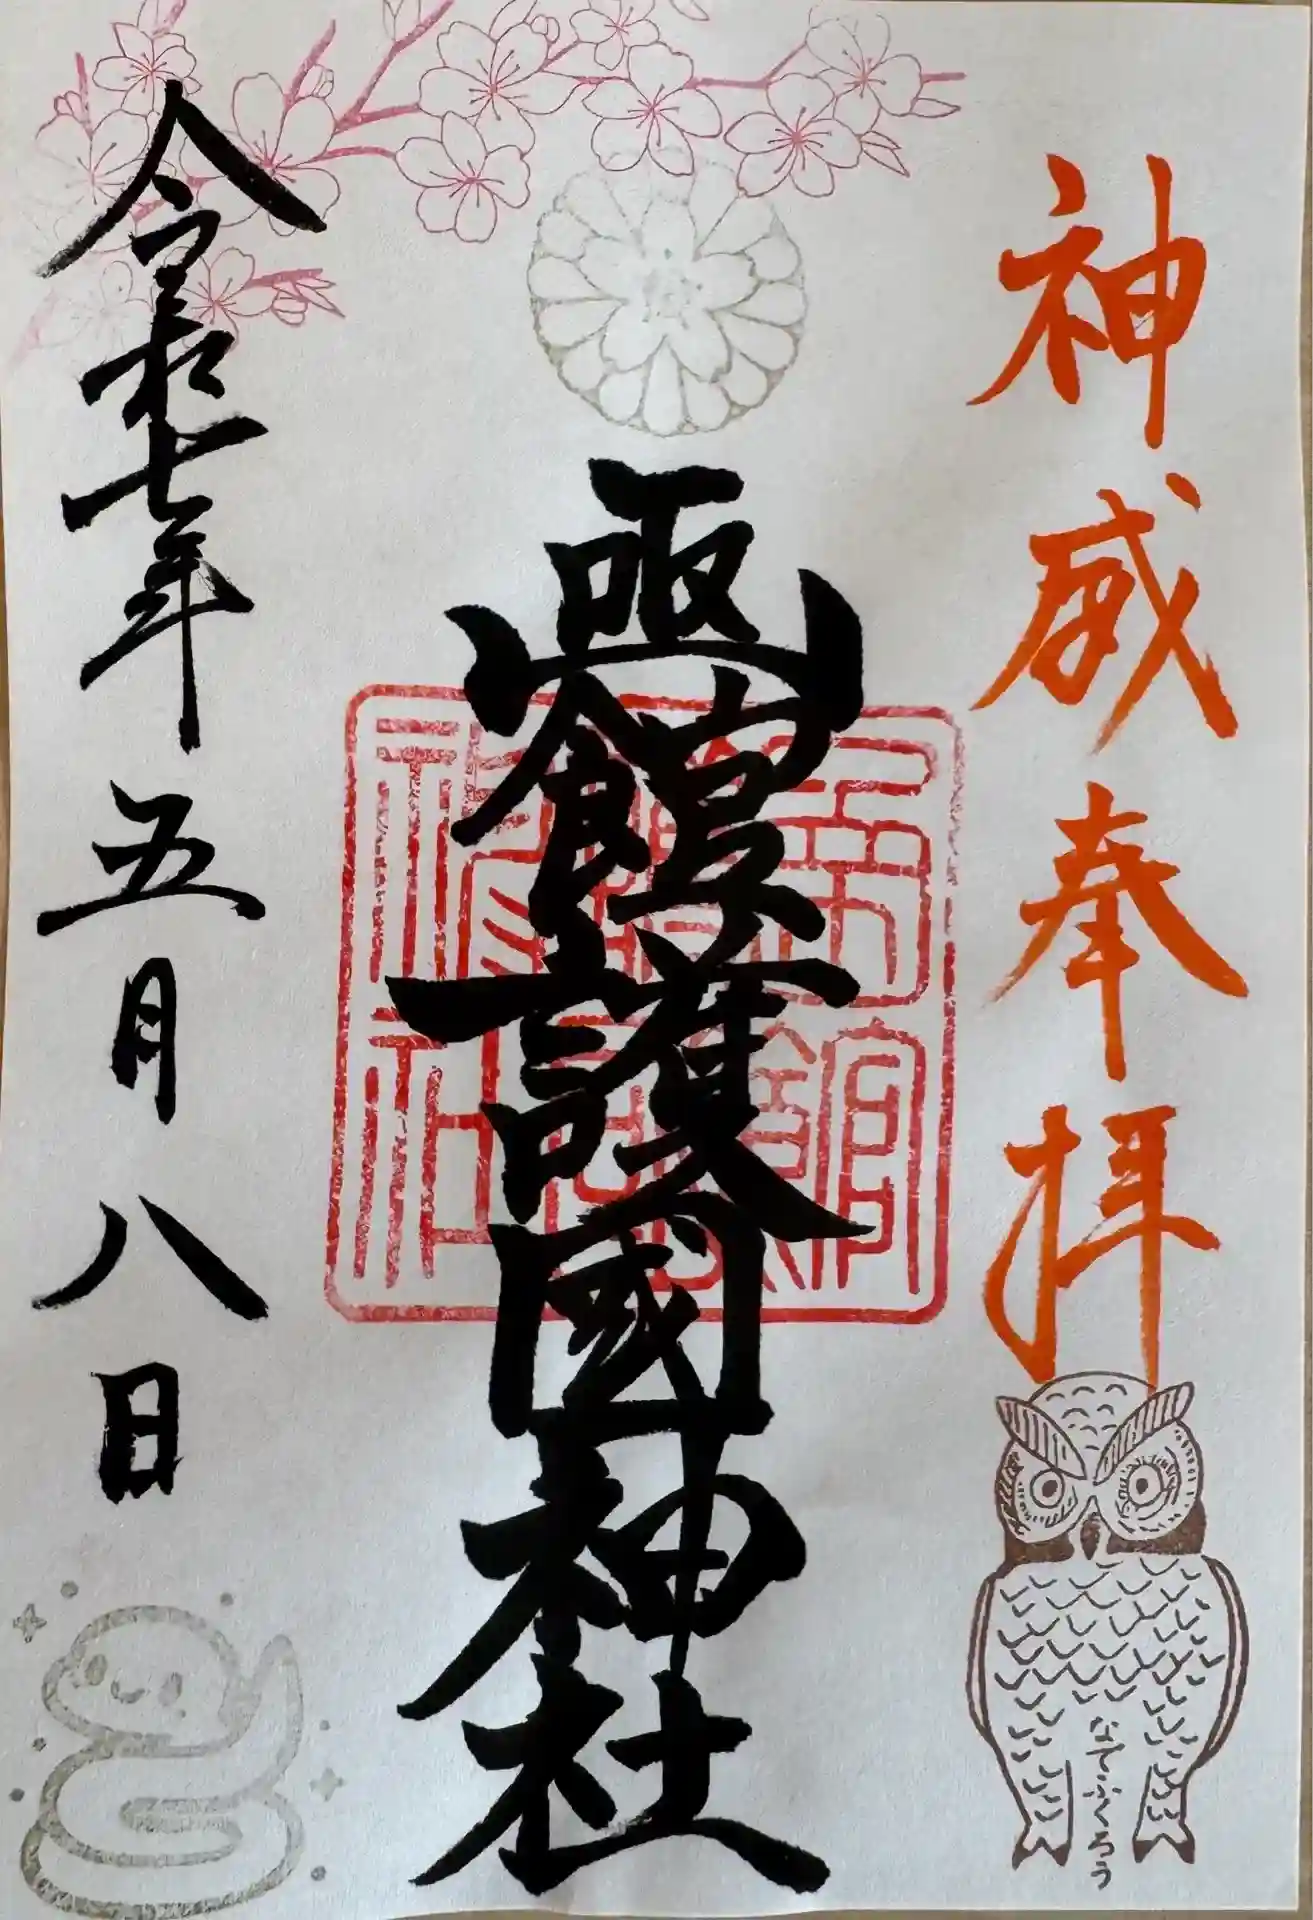 神威奉拝
函館護國神社
函館護國神社
令和七年五月八日
なでふくろう